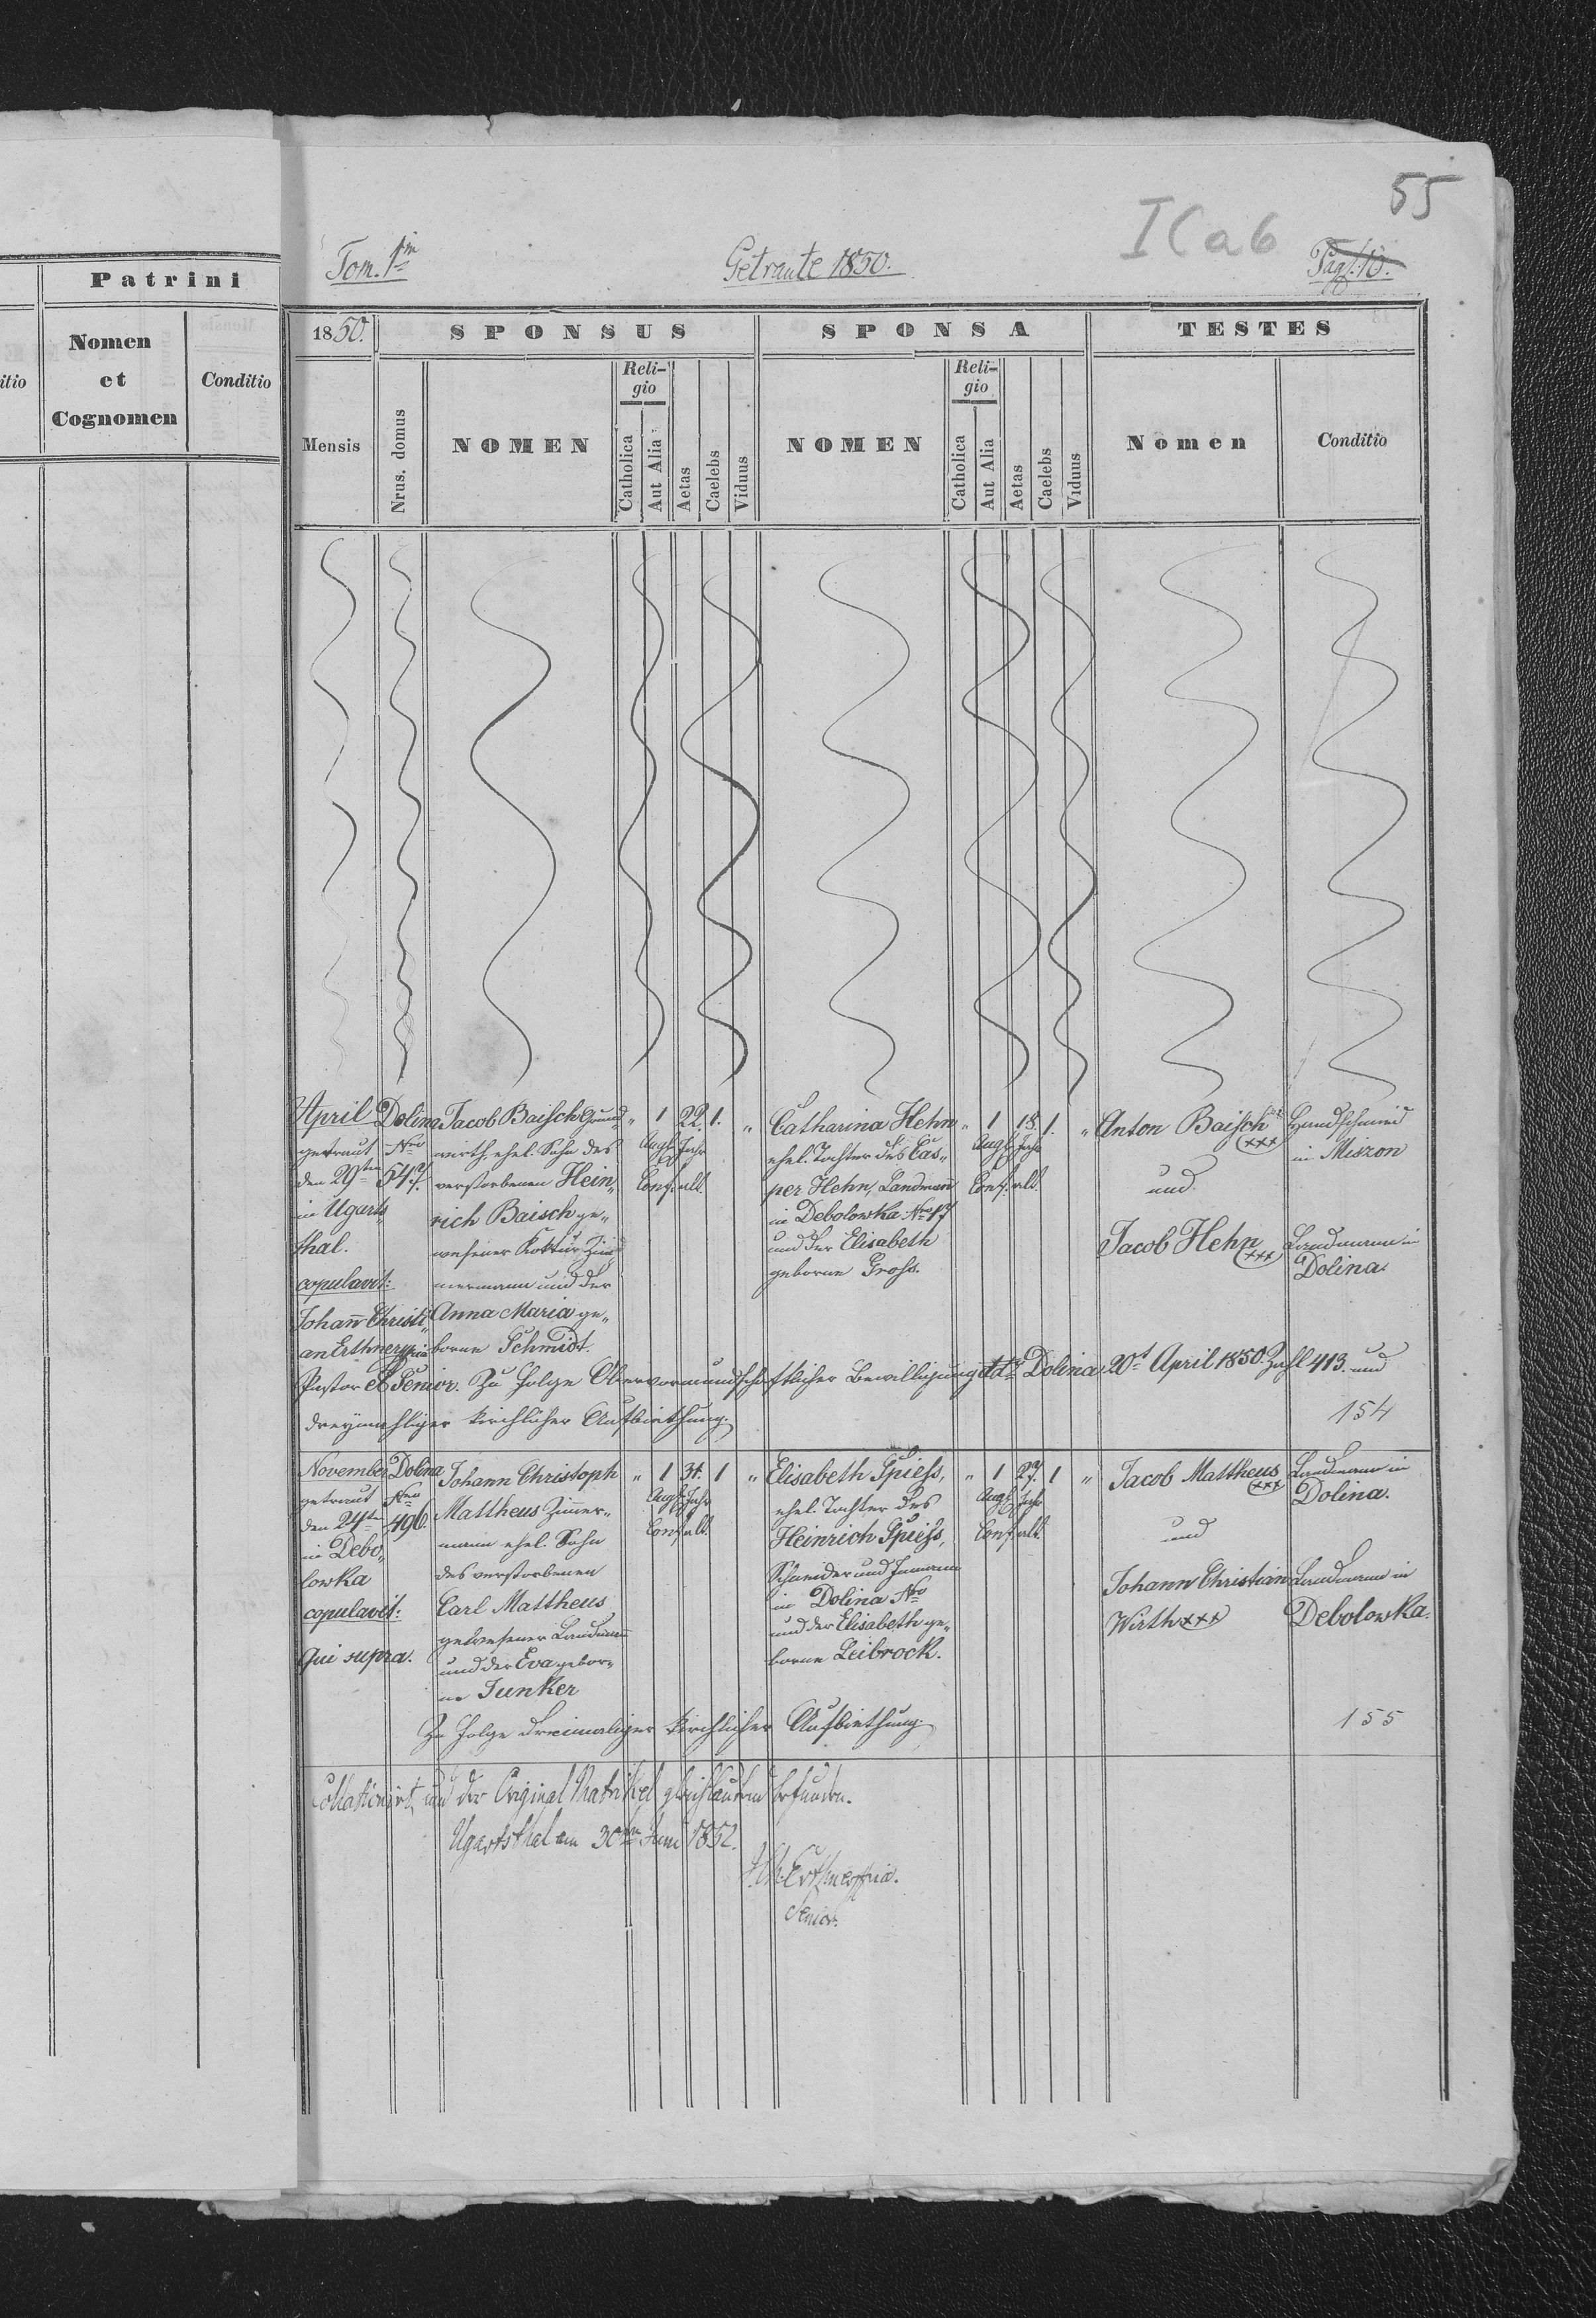 55
I C a 6
Tom. 1m
Getraute 1850.
Pag. 10.
Patrini
Nomen
et
Cognomen
itio
Conditio
1850.
SPONSUS
SPONSA
TESTES
Mensis
Nrus. domus
NOMEN
Reli-
gio
Catholica
Aut Alia
Aetas
Caelebs
Viduus
NOMEN
Reli-
gio
Catholica
Aut Alia
Aetas
Caelebs
Viduus
Nomen
Conditio
April
getraut
den 29ten
in Ugarts„
thal.
copulavit:
Johann Christi„
an Erthner
Pastor et Senior.
Dolina
Nro
547.
Jacob Baisch Grund„
wirth, ehel. Sohn des
verstorbenen Hein„
rich Baisch ge„
wesener Zim„
mermann und der
Anna Maria ge„
borne Schmidt.
„ 1 22. 1. „
Augs. Jahr
Conf. alt.
Catharina Hehn
ehel. Tochter des Cas„
per Hehn, Landmann
in Debolowka Nro 17
und der Elisabeth
geborne Gross.
„ 1 18. 1. „
Augs. Jahr
Conf. alt.
Anton Baisch
(xxx)
und
Jacob Hehn
(xxx)
in Miszon
Landmann in
Dolina.
Zu Folge Obervormundschaftlicher Bewilligung ddo Dolina 20t April 1850. Zahl 413. und
dreymahliger kirchlicher Aufbiethung.
154
November
getraut
den 24ten
in Debo„
lowka
copulavit:
Qui supra.
Dolina
Nro
496.
Johann Christoph
Mattheus Zimer„
mann ehel. Sohn
des verstorbenen
Carl Mattheus
gewesener Landmann
und der Eva gebor„
ne Junker
„ 1 31. 1 „
Augs. Jahr
Conf. alt.
Elisabeth Spiess,
ehel. Tochter des
Heinrich Spiess,
Schneider und Inmann
in Dolina Nro
und der Elisabeth ge„
borne Leibrock.
„ 1 27. 1 „
Augs. Jahr
Conf. alt.
Jacob Mattheus
(xxx)
und
Johann Christian
Wirth xxx
Landmann in
Dolina.
Landmann in
Debolowka.
Zu Folge dreimaliger kirchlicher Aufbiethung.
155
Collationirt, und der Original Matrikel gleichlautend befunden.
Ugartsthal am 30ten Juni 1852.
Erthner
Senior.